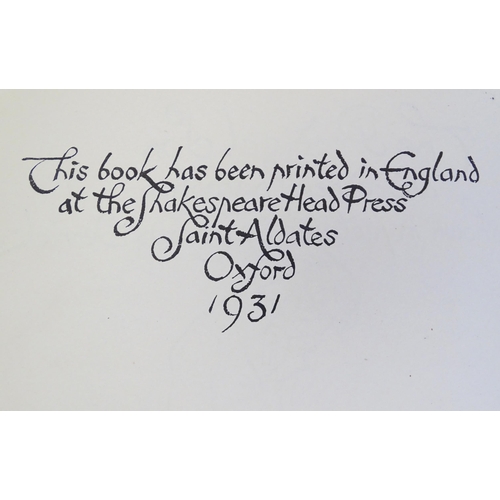 This book has been printed in England
at the Shakespeare Head Press
Saint Aldates
Oxford
1931